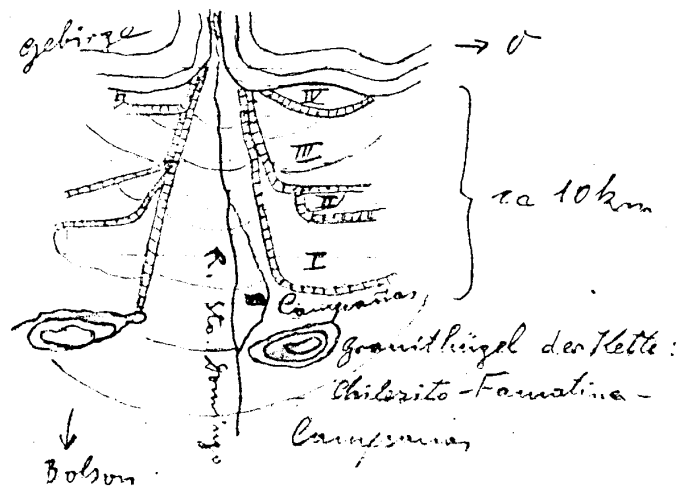 gebirge
→ O
IV
III
II
I
ca 10 km
R. Sto. Domingo
Campanas
Granithügel der Kette:
Chilecito-Famatina-
Campanas
Bolson